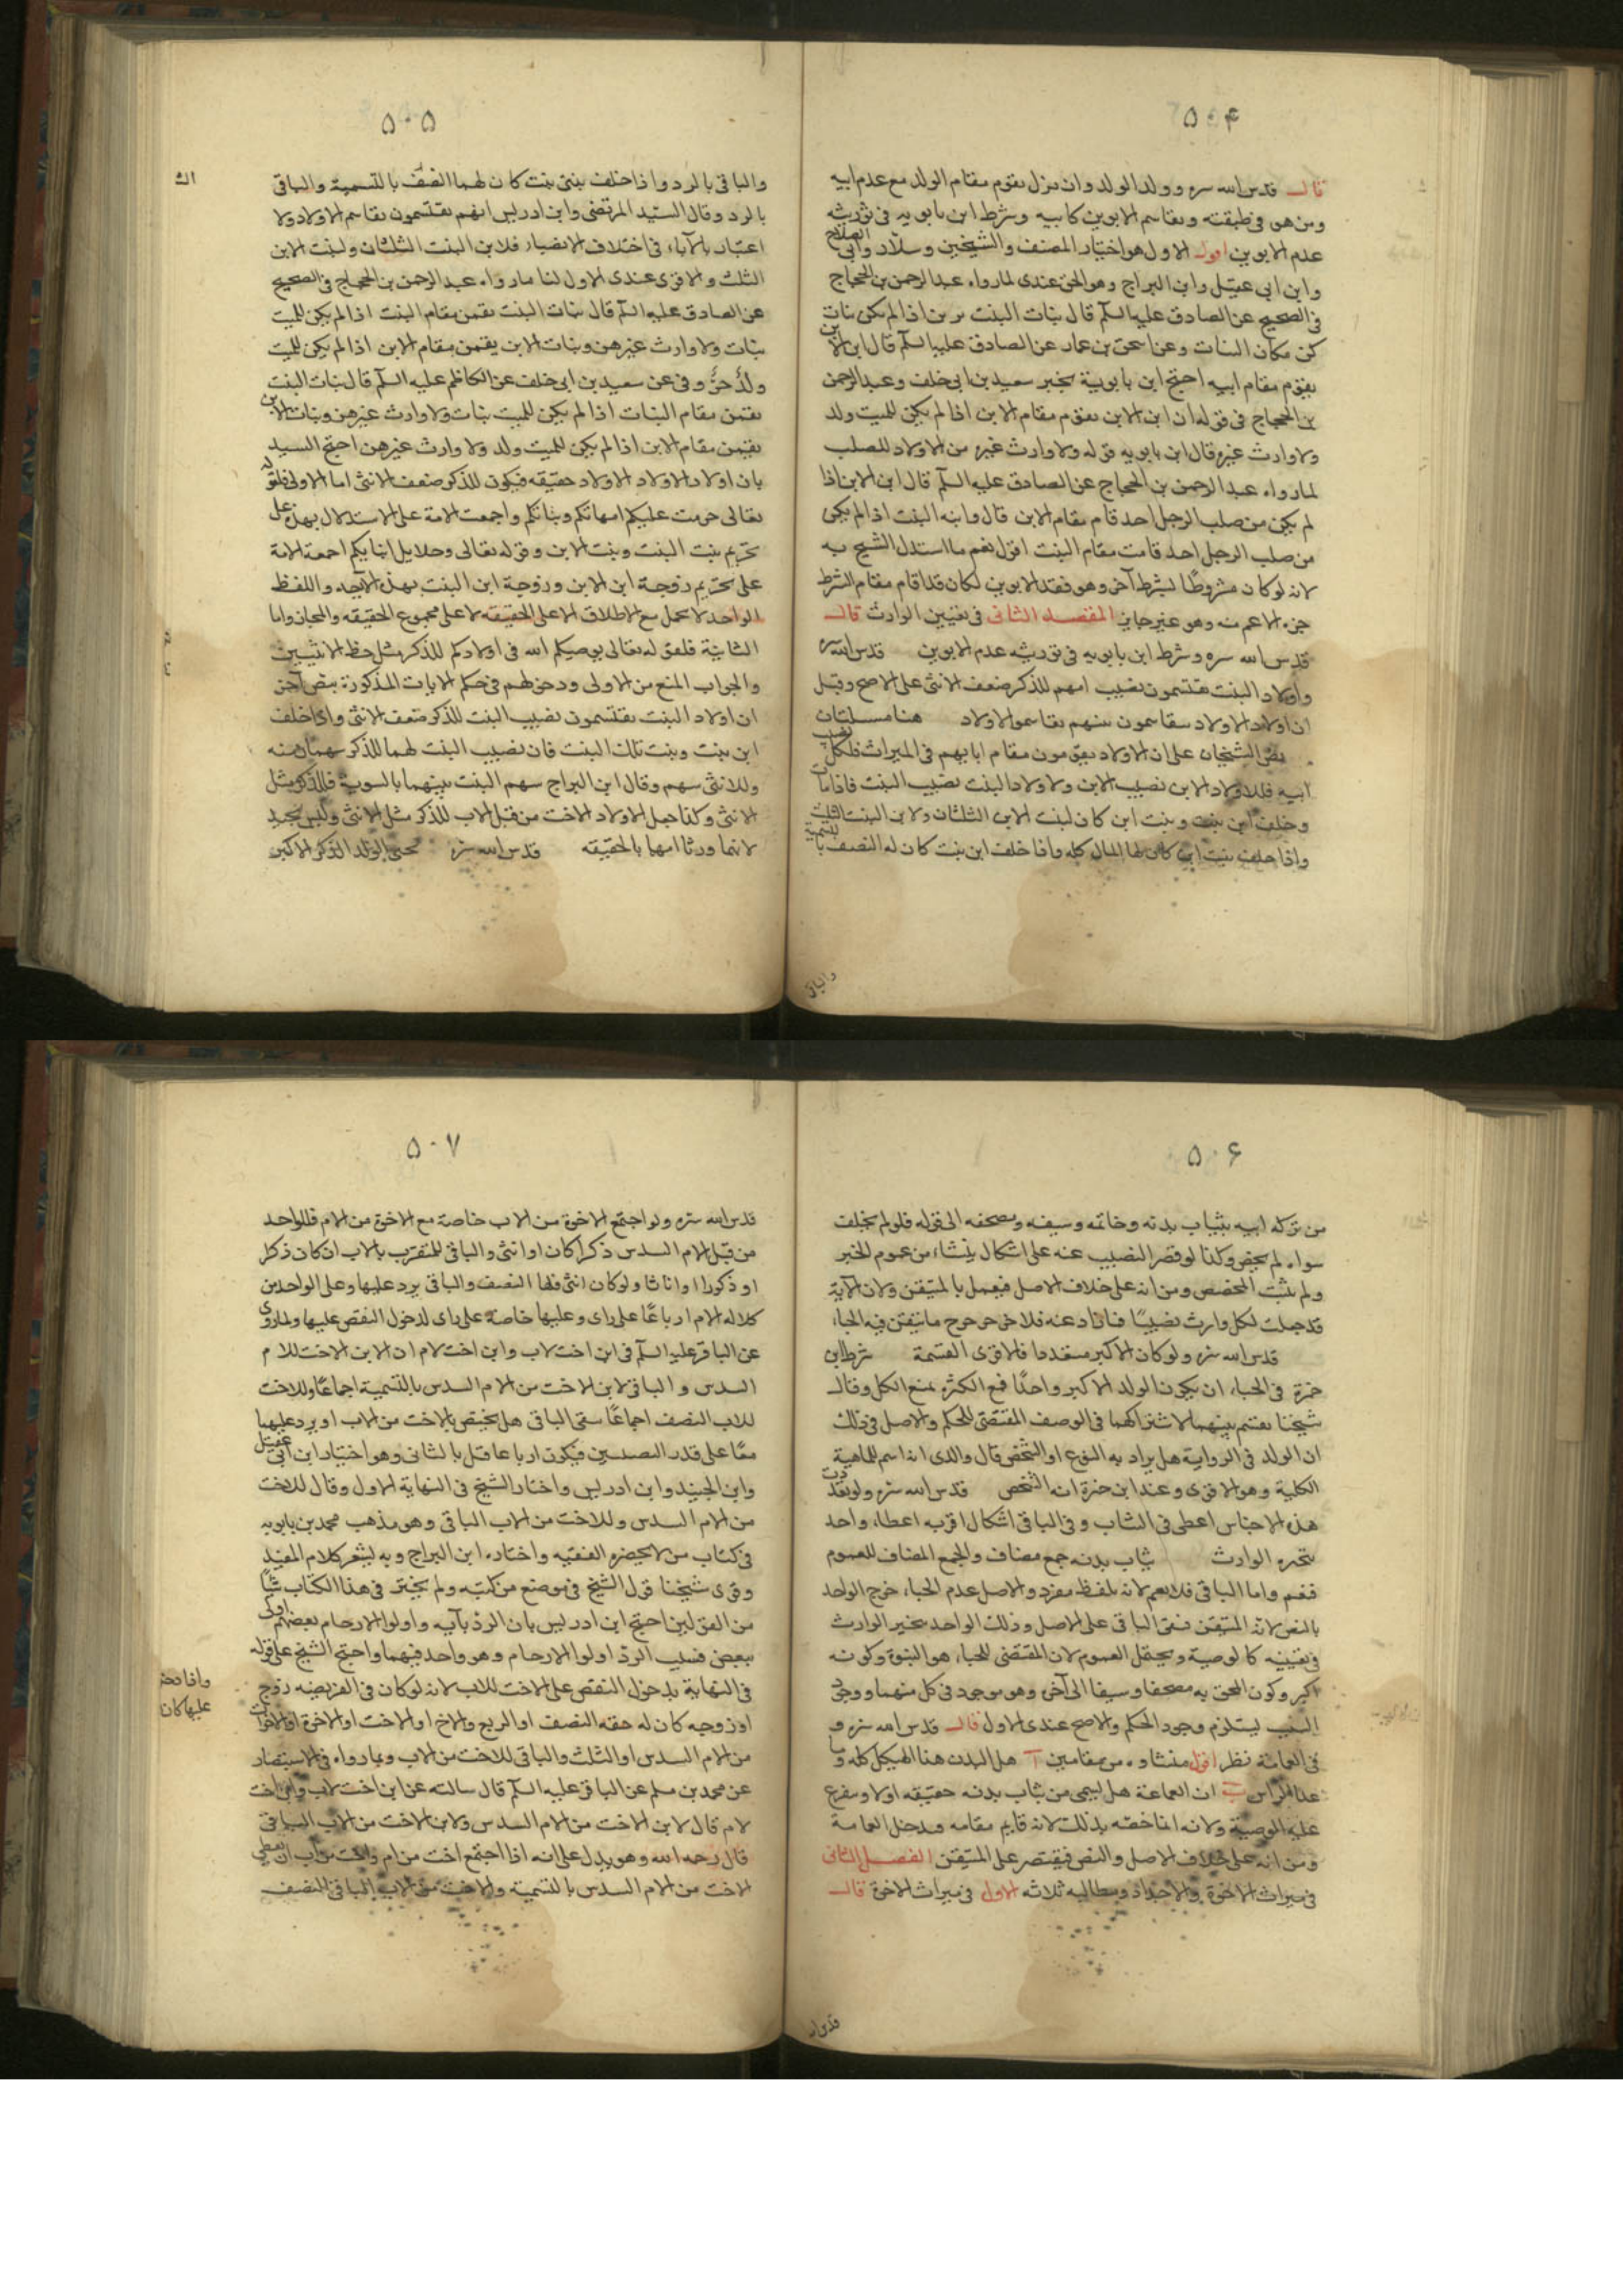 ۵۰۴
قال قدس الله سره وولد الولد وان نزل يقوم مقام الولد مع عدم ابيه
ومن هو فى طبقته ويقاسم الابوين كابيه وشرط ابن بابويه فى توريثه
عدم الابوين اقول الاول هو اختيار المصنف والشيخين وسلار وابى الصلاح
وابن ابى عقيل وابن البراج وهو الحق عندى لما رواه عبد الرحمن بن الحجاج
فى الصحيح عن الصادق عليه السلم قال بنات البنت يرثن اذا لم يكن بنات
كن مكان البنات وعن اسحق بن عمار عن الصادق عليه السلم قال ابن الابن
يقوم مقام ابيه احتج ابن بابويه بخبر سعيد بن ابى خلف وعبد الرحمن
بن الحجاج فى قوله ان ابن الابن يقوم مقام الابن اذا لم يكن للميت ولد
ولا وارث غيره قال ابن بابويه قوله ولا وارث غيره من الاولاد للصلب
لما رواه عبد الرحمن بن الحجاج عن الصادق عليه السلم قال ابن الابن اذا
لم يكن من صلب الرجل احد قام مقام الابن قال وابنه البنت اذا لم يكن
من صلب الرجل احد قامت مقام البنت اقول نعم ما استدل الشيخ به
لانه لو كان مشروطا بشرط آخر وهو فقد الابوين لكان قد اقام مقام الشرط
جزء الاعم منه وهو غير جايز المقصد الثانى فى تعيين الوارث قال
قدس الله سره وشرط ابن بابويه فى توريثه عدم الابوين قدس الله سره
واولاد البنت يقتسمون نصيب امهم للذكر ضعف الانثى على الاصح وقيل
ان اولاد الاولاد يتقاسمون بينهم تقاسم الاولاد هنا مسئلتان
نص الشيخان على ان الاولاد يقومون مقام ابايهم فى الميراث فلكل نصيب
ابيه فللاولاد الابن نصيب الابن ولاولاد البنت نصيب البنت فاذا مات
وخلف ابن بنت وبنت ابن كان لبنت الابن الثلثان ولابن البنت الثلث
واذا خلف بنت ابن كان لها المال كله واذا خلف ابن بنت كان له النصف بالتسمية
والباقى
۵۰۵
والباقى بالرد واذا خلف بنتى بنت كان لهما النصف بالتسمية والباقى
بالرد وقال السيد المرتضى وابن ادريس انهم يقتسمون تقاسم الاولاد ولا
اعتبار بالاباء فى اختلاف الانصباء فلابن البنت الثلثان ولبنت الابن
الثلث والاقوى عندى الاول لنا ما رواه عبد الرحمن بن الحجاج فى الصحيح
عن الصادق عليه السلم قال بنات البنت يقمن مقام البنت اذا لم يكن للميت
بنات ولا وارث غيرهن وبنات الابن يقمن مقام الابن اذا لم يكن للميت
ولد حز وفى عن سعيد بن ابى خلف عن الكاظم عليه السلم قال بنات البنت
يقمن مقام البنات اذا لم يكن للميت بنات ولا وارث غيرهن وبنات الابن
يقمن مقام الابن اذا لم يكن للميت ولد ولا وارث غيرهن احتج السيد
بان اولاد الاولاد الاولاد حقيقه فيكون للذكر ضعف الانثى اما الاولى فلقوله
تعالى حرمت عليكم امهاتكم وبناتكم واجمعت الامة على الاستدلال بهذه على
تحريم بنت البنت وبنت الابن وقوله تعالى وحلايل ابنايكم اجمعت الامة
على تحريم زوجة ابن الابن وزوجة ابن البنت بهذه الآية واللفظ
الواحد لا يحمل مع الاطلاق الا على الحقيقه لا على مجموع الحقيقه والمجاز واما
الثانية فلقوله تعالى يوصيكم الله فى اولادكم للذكر مثل حظ الانثيين
والجواب المنع من الاولى ودخولهم فى حكم الايات المذكورة بنص آخر
ان اولاد البنت يقتسمون نصيب البنت للذكر ضعف الانثى واذا خلف
ابن بنت وبنت تلك البنت فان نصيب البنت لهما للذكر سهمان منه
وللانثى سهم وقال ابن البراج سهم البنت بينهما بالسوية فللذكر مثل
الانثى وكذا جعل الاولاد الاخت من قبل الاب للذكر مثل الانثى وليس بجيد
لانهما ورثا امهما بالحقيقه قدس الله سره يحبى الولد الذكر الاكبر
۵۰۶
من تركه ابيه بثياب بدنه وخاتمه وسيفه ومصحفه الى قوله فلو لم يخلف
سواه لم يخص وكذا لو قصر النصيب عنه على اشكال ينشاء من عموم الخبر
ولم يثبت المخصص ومن انه على خلاف الاصل فيعمل بالمتيقن ولان الآية
قد جعلت لكل وارث نصيبا فاذا
قدس الله سره ولو كان الاكبر متعددا فالاقوى القسمة شرط ابن
حمزة فى الحباء ان يكون الولد الاكبر واحدا فمع الكثرة يمنع الكل وقال
شيخنا يقسم بينهما لاشتراكهما فى الوصف المقتضى للحكم والاصل فى ذلك
ان الولد فى الرواية هل يراد به النوع او الشخص قال والدى انه اسم للماهية
الكلية وهو الاقوى وعند ابن حمزة انه الشخص قدس الله سره ولو تعددت
هذه الاجناس اعطى فى الثياب وفى الباقى اشكال اقربه اعطاء واحد
يتخيره الوارث ثياب بدنه جمع مضاف والجمع المضاف للعموم
فيعم واما الباقى فلا يعم لانه بلفظ مفرد والاصل عدم الحباء خرج الواحد
بالنص لانه المتيقن فبقى الباقى على الاصل وذلك الواحد بتخير الوارث
فى تعيينه كالوصية ويحتمل العموم لان المقتضى للحباء هو البنوة وكونه
اكبر وكون المحق به مصحفا وسيفا الى آخره وهو موجود فى كل منهما ووجود
السبب يستلزم وجود الحكم والاصح عندى الاول قال قدس الله سره و
فى العمامة نظر اقول منشاوه من مقامين آ هل البدن هذا الهيكل كله وما
عدا الراس ب ان العمامة هل يسمى من ثياب بدنه حقيقه اولا ويتفرع
عليه الوصية ولانه انما خصه بذلك لانه قايم مقامه فيدخل العمامة
ومن انه على خلاف الاصل والنص فيقتصر على المتيقن الفصل الثانى
فى ميراث الاخوة والاجداد ومطالبه ثلاثه الاول فى ميراث الاخوة قال
قدس الله
۵۰۷
قدس الله سره ولو اجتمع الاخوة من الاب خاصة مع الاخوة من الام فللواحد
من قبل الام السدس ذكرا كان او انثى والباقى للمتقرب بالاب ان كان ذكرا
او ذكورا او اناثا ولو كان انثى فلها النصف والباقى يرد عليها وعلى الواحد من
كلاله الام ارباعا على راى وعليها خاصة على راى لدخول النقص عليها ولما روى
عن الباقر عليه السلم فى ابن اخت لاب وابن اخت لام ان لابن الاخت للام
السدس والباقى لابن الاخت من الام السدس بالتسمية اجماعا وللاخت
للاب النصف اجماعا بقى الباقى هل يختص بالاخت من الاب او يرد عليهما
معا على قدر النصيبين فيكون ارباعا قيل بالثانى وهو اختيار ابن ابى عقيل
وابن الجنيد وابن ادريس واختار الشيخ فى النهاية الاول وقال للاخت
من الام السدس وللاخت من الاب الباقى وهو مذهب محمد بن بابويه
فى كتاب من لا يحضره الفقيه واختاره ابن البراج وبه يشعر كلام المفيد
وقوى شيخنا قول الشيخ فى موضع من كتبه ولم يختر فى هذا الكتاب شيئا
من القولين احتج ابن ادريس بان الرد بآيه واولوا الارحام بعضهم اولى
ببعض فسبب الرد اولوا الارحام وهو واحد فيهما واحتج الشيخ على قوله
فى النهاية بدخول النقص على الاخت للاب لانه لو كان فى الفريضه زوج
او زوجه كان له حقه النصف او الربع والاخ او الاخت او الاخوة او الاخوات
من الام السدس او الثلث والباقى للاخت من الاب وبما رواه فى الاستبصار
عن محمد بن مسلم عن الباقر عليه السلم قال سالته عن ابن اخت لاب وابن اخت
لام قال لابن الاخت من الام السدس ولابن الاخت من الاب الباقى
قال رحمه الله وهو يدل على انه اذا اجتمع اخت من ام واخت من اب ان يعطى
الاخت من الام السدس بالتسمية والاخت من الاب الباقى النصف